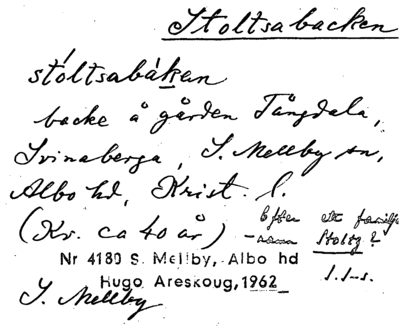 Stoltsabacken
stóltsabákan
backe å gården Tångdala,
Svinaberga, S. Mellby sn,
Albo hd, Krist. l.
(Kv. ca 40 år) – Efter ett familje-
namn Stoltz?
Nr 4180 S. Mellby, Albo hd
Hugo Areskoug, 1962
S. Mellby